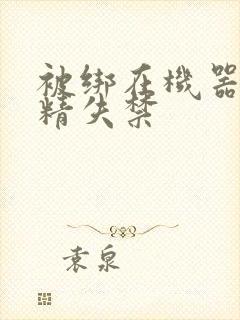 被绑在機器
精失禁
袁泉